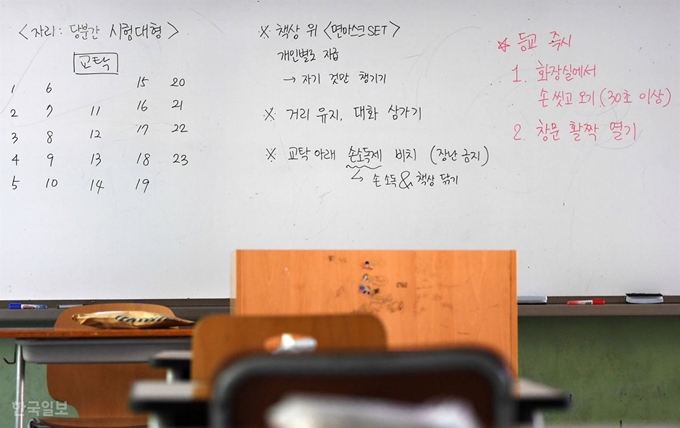 <자리: 당분간 시험대형>
교탁
15 20
1 6
16 21
2 7 11
17 22
3 8 12
4 9 13 18 23
5 10 14 19
※ 책상 위 <면마스크SET>
개인별로 지급
→ 자기 것만 챙기기
※ 거리 유지, 대화 삼가기
※ 교탁 아래 손소독제 비치 (장난 금지)
↳ 손 소독 & 책상 닦기
※ 등교 즉시
1. 화장실에서
손 씻고 오기 (30초 이상)
2. 창문 활짝 열기
한국일보